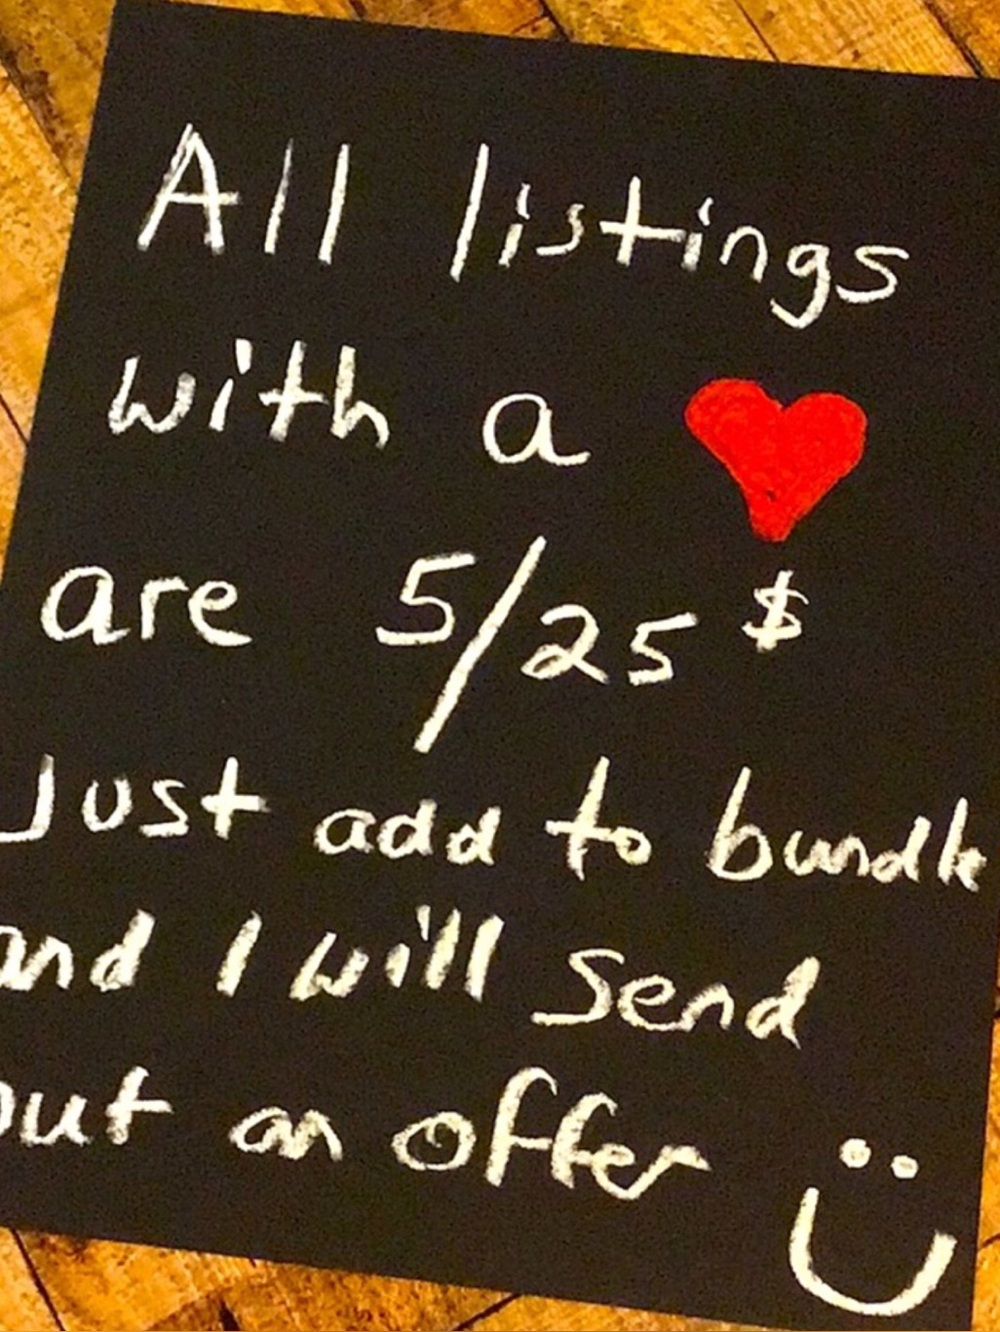 All listings
with a ❤
are 5/25 $
Just add to bundle
and I will send
out an offer